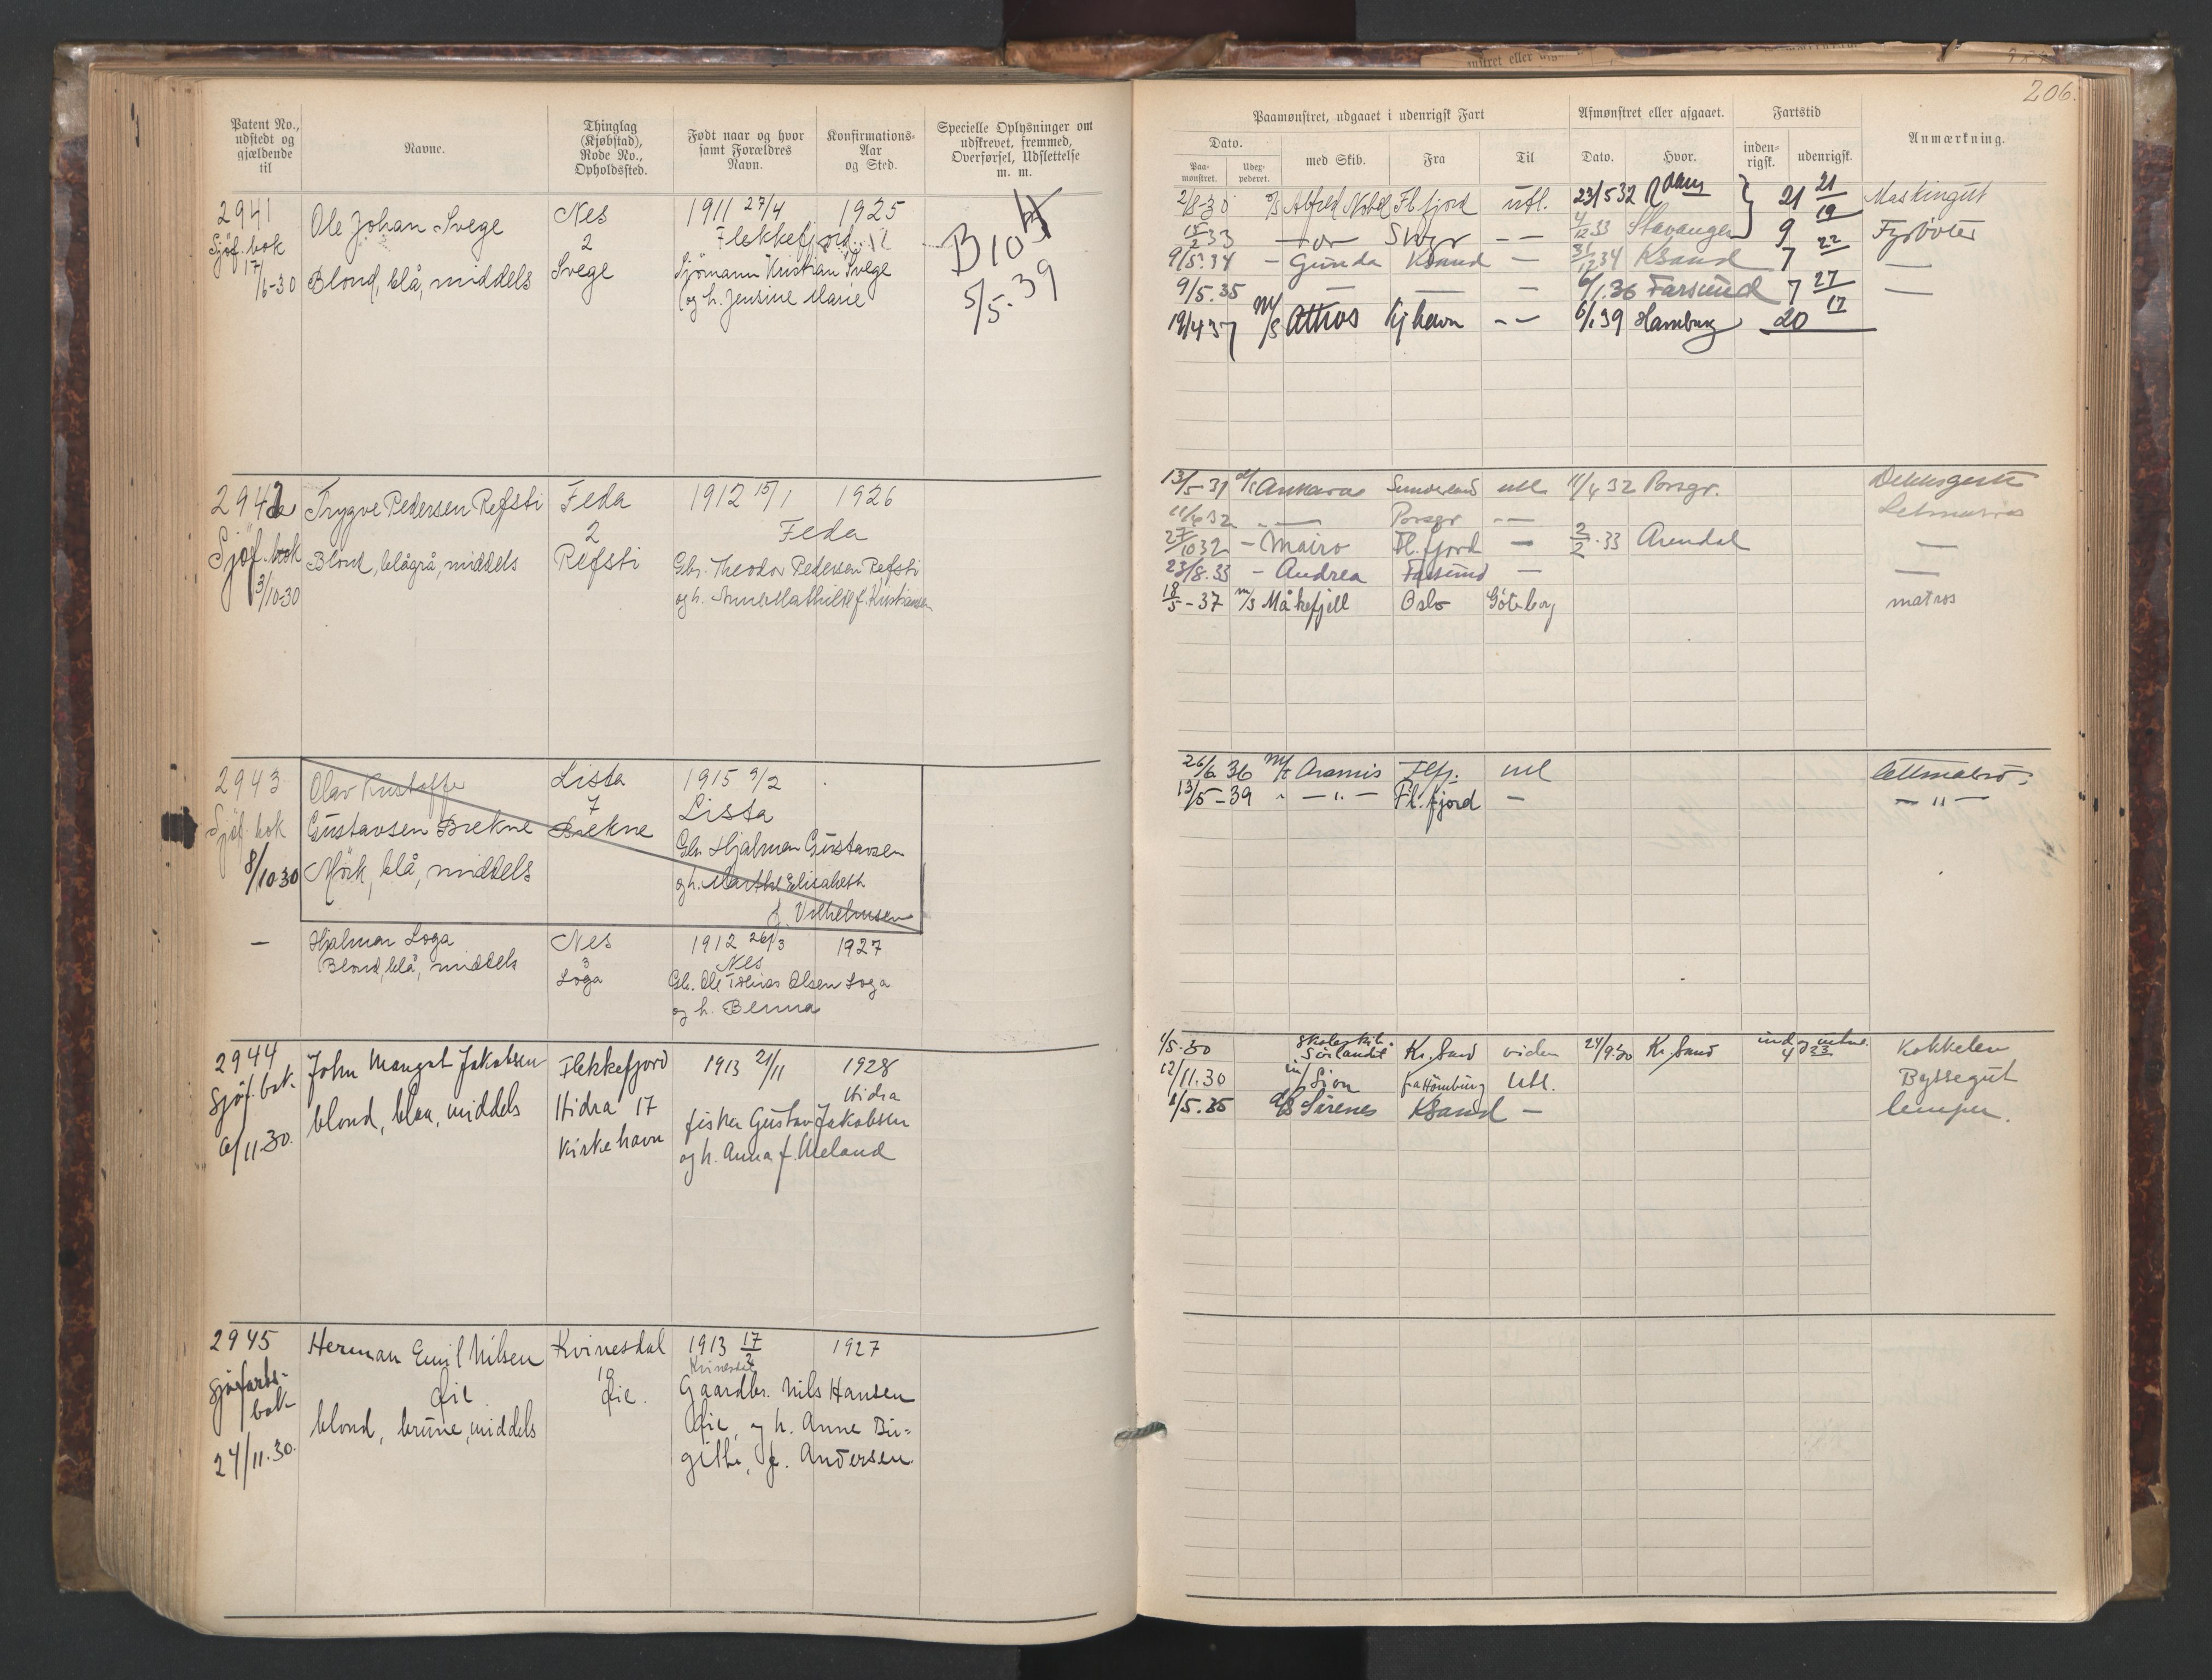 206.
Patent No., udstedt og gjældende til
Navne.
Thinglag (Kjøbstad), Rode No., Opholdssted.
Født naar og hvor samt Forældres Navn.
Konfirmations-Aar og Sted.
Specielle Oplysninger om udskrevet, fremmed, Overførsel, Udslettelse m. m.
Paamønstret, udgaaet i udenrigsk Fart
Afmønstret eller afgaaet.
Fartstid
Anmærkning.
Dato.
Paamønstret.
Udexpederet.
med Skib.
Fra
Til
Dato.
Hvor.
indenrigsk.
udenrigsk.
2941 Ole Johan Svege Nes 1911 27/4 1925
Sjöf. bok 2 Flekkefjord
17/6-30 Blond, blå, middels Svege Sjömann Kristian Svege
og h. Jensine Marie
B 10
5/5-39
2/8-30 Alfred Nobel Fl.fjord utl. 23/5 32 21 21 Maskingut
15/2 33 4/12 33 Stavanger 9 19 Fyrböter
9/5.34 — Gunda KSand — 31/12 34 KSand 7 22 —
9/5.35 — — — 6/1.36 Farsund 7 27 —
19/4 37 M/S Athos Kjhavn - - 6/1 39 Hamburg 20 17
2942 Trygve Pedersen Refsti Feda 1912 15/1 1926
Sjöf. bok 2 Feda
3/10-30 Blond, blågrå, middels Refsti Gbr. Theodor Pedersen Refsti
og h. Anna Mathilde f. Kristiansen
13/5-31 Ankara Sunderland utl. 11/4 32 Porsgr. Dekksgutt
11/6 32 — Porsgr - - Letmatros
27/10 32 — Mairo Fl.fjord — 2/2.33 Arendal —
23/8.33 — Andrea Farsund — —
18/5-37 m/s Måkefjell Oslo Göteborg matros
2943 Olav Kristoffer Lista 1915 9/2
Sjöf. bok Gustavsen Brekne 7 Lista
8/10 30 Mörk, blå, middels Brekne Gbr Hjalmar Gustavsen
og h. Marthe Elisabeth
f. Vilhelmsen
26/6 36 Aramis Flfj. utl Lettmatros
13/5-39 " — " — Fl.fjord — — " —
— Hjalmar Loga Nes 1912 26/3 1927
Blond, blå, middels 3 Nes
Loga Gbr. Ole Tobias Olsen Loga
og h. Berna
2944 John Mangot Jakobsen Flekkefjord 1913 21/11 1928
Sjöf. bok Hidra 17 Hidra
6/11.30. blond, blaa, middels Kirkehavn fisker Gustav Jakobsen
og h. Anna f. Ueland
1/5.30 Skoleskib. Sörlandet Kr.Sand viden 24/9.30 Kr.Sand 4 23 Kokkelev
12/11.30 m/ Sion fra Hamburg Utl. Byssegut
1/5.35 d/s Sirenes KSand — lemper.
2945 Herman Emil Nilsen Kvinesdal 1913 17/2 1927
Sjøfarts-bok Øie 10 Kvinesdal
24/11.30. blond, brune, middels Øie. Gaardbr. Nils Hansen
Øie, og h. Anne Bir-
githe, f. Andersen